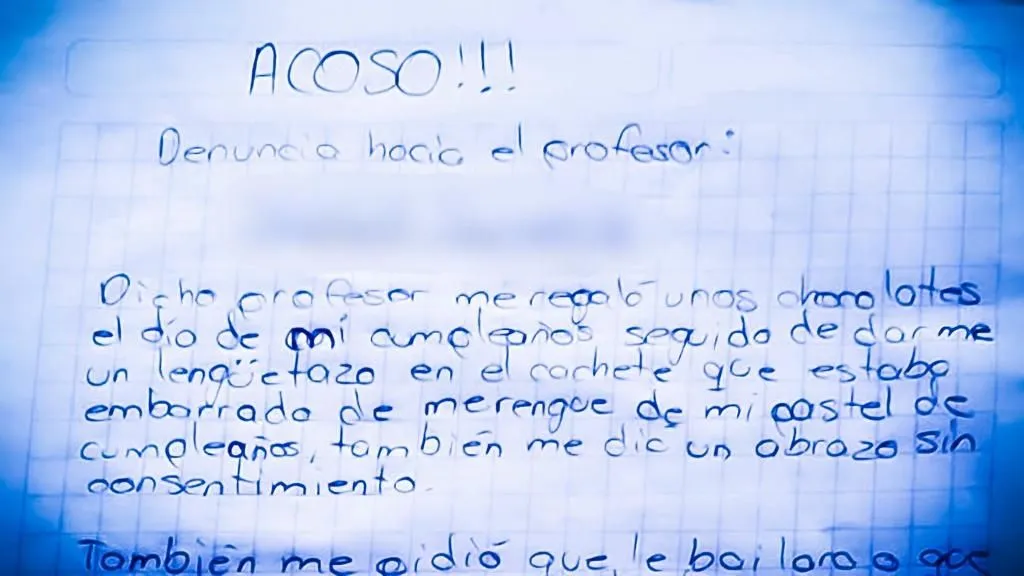 ACOSO!!!
Denuncia hacia el profesor:
Dicho profesor me regaló unos chocolates
el día de mi cumpleaños seguido de darme
un lengüetazo en el cachete que estaba
embarrado de merengue de mi pastel de
cumpleaños, también me dio un abrazo sin
consentimiento.
También me pidió que le bailara o que